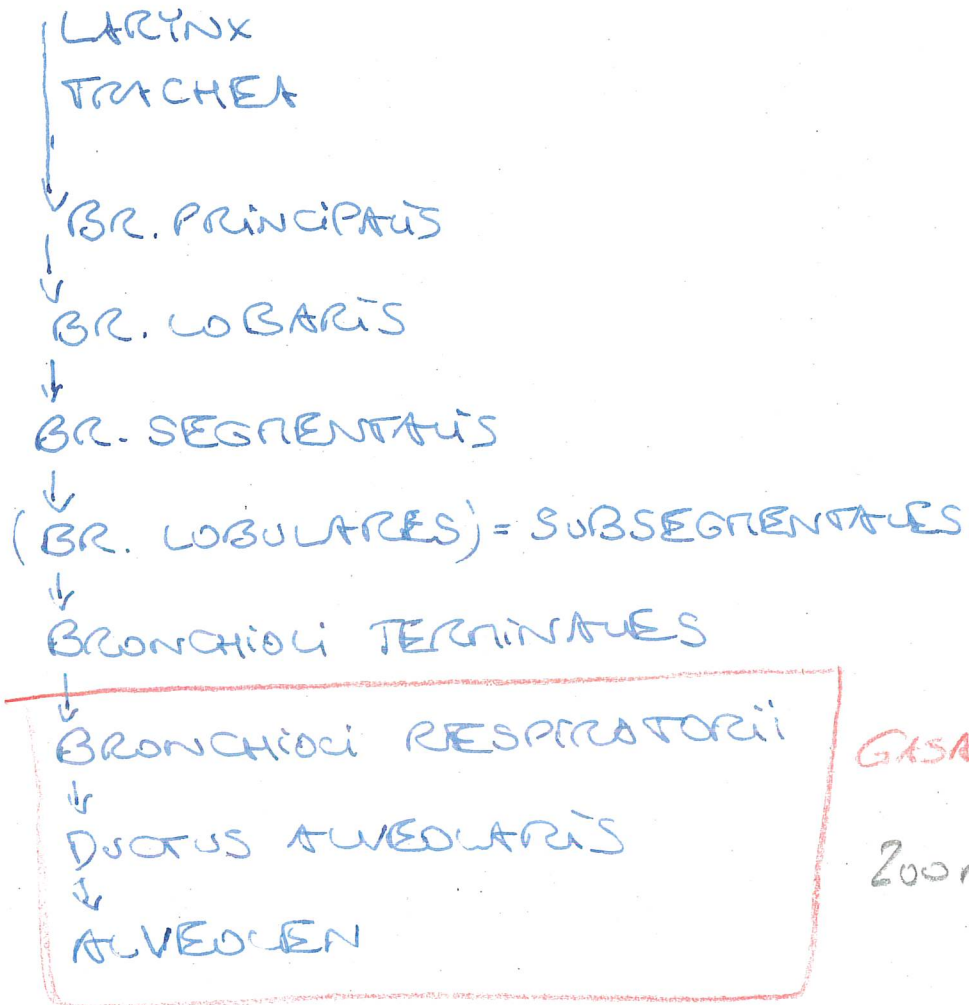 LARYNX
TRACHEA
BR. PRINCIPALIS
BR. LOBARIS
BR. SEGMENTALIS
(BR. LOBULARES) = SUBSEGMENTALES
BRONCHIOLI TERMINALES
BRONCHIOLI RESPIRATORII
GASA
DUCTUS ALVEOLARIS
200
ALVEOLEN